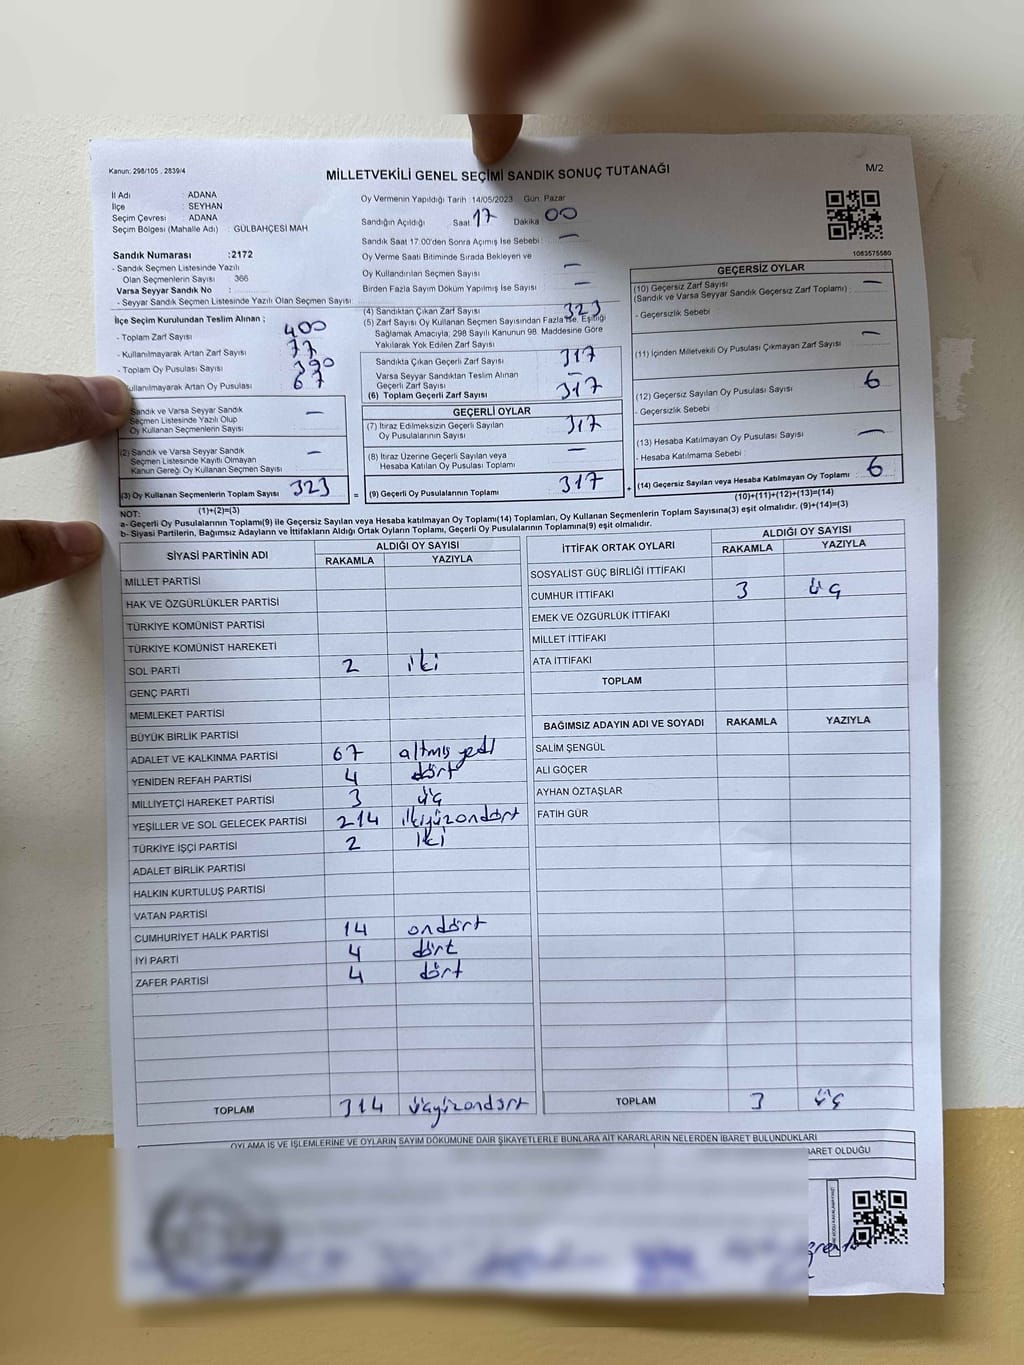 Kanun: 298/105 , 2839/4
MİLLETVEKİLİ GENEL SEÇİMİ SANDIK SONUÇ TUTANAĞI
M/2
İl Adı : ADANA
İlçe : SEYHAN
Seçim Çevresi : ADANA
Seçim Bölgesi (Mahalle Adı) : GÜLBAHÇESİ MAH
Sandık Numarası :2172
- Sandık Seçmen Listesinde Yazılı
Olan Seçmenlerin Sayısı : 366
Varsa Seyyar Sandık No :
- Seyyar Sandık Seçmen Listesinde Yazılı Olan Seçmen Sayısı:
İlçe Seçim Kurulundan Teslim Alınan ;
- Toplam Zarf Sayısı 400
- Kullanılmayarak Artan Zarf Sayısı 77
- Toplam Oy Pusulası Sayısı 390
Kullanılmayarak Artan Oy Pusulası 67
Sandık ve Varsa Seyyar Sandık
Seçmen Listesinde Yazılı Olup
Oy Kullanan Seçmenlerin Sayısı —
(2) Sandık ve Varsa Seyyar Sandık
Seçmen Listesinde Kayıtlı Olmayan
Kanun Gereği Oy Kullanan Seçmen Sayısı —
(3) Oy Kullanan Seçmenlerin Toplam Sayısı 323
Oy Vermenin Yapıldığı Tarih : 14/05/2023 Gün: Pazar
Sandığın Açıldığı Saat 17 Dakika 00
Sandık Saat 17:00'den Sonra Açmış İse Sebebi : —
Oy Verme Saati Bitiminde Sırada Bekleyen ve
Oy Kullandırılan Seçmen Sayısı —
Birden Fazla Sayım Döküm Yapılmış İse Sayısı —
(4) Sandıktan Çıkan Zarf Sayısı 323
(5) Zarf Sayısı Oy Kullanan Seçmen Sayısından Fazla İse, Eşitliği
Sağlamak Amacıyla, 298 Sayılı Kanunun 98. Maddesine Göre
Yakılarak Yok Edilen Zarf Sayısı
Sandıkta Çıkan Geçerli Zarf Sayısı 317
Varsa Seyyar Sandıktan Teslim Alınan
Geçerli Zarf Sayısı —
(6) Toplam Geçerli Zarf Sayısı 317
GEÇERLİ OYLAR
(7) İtiraz Edilmeksizin Geçerli Sayılan
Oy Pusulalarının Sayısı 317
(8) İtiraz Üzerine Geçerli Sayılan veya
Hesaba Katılan Oy Pusulası Toplamı —
= (9) Geçerli Oy Pusulalarının Toplamı 317
1083575580
GEÇERSİZ OYLAR
(10) Geçersiz Zarf Sayısı —
(Sandık ve Varsa Seyyar Sandık Geçersiz Zarf Toplamı) :
- Geçersizlik Sebebi :
(11) İçinden Milletvekili Oy Pusulası Çıkmayan Zarf Sayısı —
(12) Geçersiz Sayılan Oy Pusulası Sayısı 6
- Geçersizlik Sebebi :
(13) Hesaba Katılmayan Oy Pusulası Sayısı —
- Hesaba Katılmama Sebebi :
+ (14) Geçersiz Sayılan veya Hesaba Katılmayan Oy Toplamı 6
NOT: (1)+(2)=(3) (10)+(11)+(12)+(13)=(14)
a- Geçerli Oy Pusulalarının Toplamı(9) ile Geçersiz Sayılan veya Hesaba katılmayan Oy Toplamı(14) Toplamları, Oy Kullanan Seçmenlerin Toplam Sayısına(3) eşit olmalıdır. (9)+(14)=(3)
b- Siyasi Partilerin, Bağımsız Adayların ve İttifakların Aldığı Ortak Oyların Toplamı, Geçerli Oy Pusulalarının Toplamına(9) eşit olmalıdır.
SİYASİ PARTİNİN ADI ALDIĞI OY SAYISI
RAKAMLA YAZIYLA
MİLLET PARTİSİ
HAK VE ÖZGÜRLÜKLER PARTİSİ
TÜRKİYE KOMÜNİST PARTİSİ
TÜRKİYE KOMÜNİST HAREKETİ
SOL PARTİ 2 iki
GENÇ PARTİ
MEMLEKET PARTİSİ
BÜYÜK BİRLİK PARTİSİ
ADALET VE KALKINMA PARTİSİ 67 altmış yedi
YENİDEN REFAH PARTİSİ 4 dört
MİLLİYETÇİ HAREKET PARTİSİ 3 üç
YEŞİLLER VE SOL GELECEK PARTİSİ 214 ikiyüzondört
TÜRKİYE İŞÇİ PARTİSİ 2 iki
ADALET BİRLİK PARTİSİ
HALKIN KURTULUŞ PARTİSİ
VATAN PARTİSİ
CUMHURİYET HALK PARTİSİ 14 ondört
İYİ PARTİ 4 dört
ZAFER PARTİSİ 4 dört
TOPLAM 314 üçyüzondört
İTTİFAK ORTAK OYLARI ALDIĞI OY SAYISI
RAKAMLA YAZIYLA
SOSYALİST GÜÇ BİRLİĞİ İTTİFAKI
CUMHUR İTTİFAKI 3 üç
EMEK VE ÖZGÜRLÜK İTTİFAKI
MİLLET İTTİFAKI
ATA İTTİFAKI
TOPLAM
BAĞIMSIZ ADAYIN ADI VE SOYADI RAKAMLA YAZIYLA
SALİM ŞENGÜL
ALİ GÖÇER
AYHAN ÖZTAŞLAR
FATİH GÜR
TOPLAM 3 üç
OYLAMA İŞ VE İŞLEMLERİNE VE OYLARIN SAYIM DÖKÜMÜNE DAİR ŞİKAYETLERLE BUNLARA AİT KARARLARIN NELERDEN İBARET BULUNDUKLARI
BARET OLDUĞU